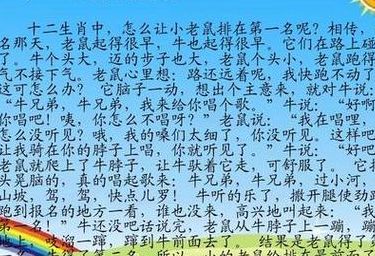 十二生肖中，怎么让小老鼠排在第一名呢？相传，
名那天，老鼠起得很早，牛也起得很早。它们在路上碰
了。牛个头大，迈的步子也大，老鼠个头小，老鼠跑得
气不接下气。老鼠心里想：路还远着呢，我快跑不动了
这可怎么办？它脑子一动，想出个主意来，就对牛说：
“牛兄弟，牛兄弟，我来给你唱个歌。”牛说：“好啊
你唱吧！咦，你怎么不唱呀？”老鼠说：“我在唱哩，
怎么没听见？哦，我的嗓们太细了，你没听见。这样吧
让我骑在你的脖子上唱，你就听见了。”牛说：“好吧
老鼠就爬上了牛脖子，让牛驮着它走，可舒服了。它
头晃脑的，真的唱起歌来：牛兄弟，牛兄弟，过小河，
山坡，驾，驾，快点儿罗！牛听的乐了，撒开腿使劲
跑到报名的地方一看，谁也没来，高兴地叫起来：“我
第一名！”牛还没把话说完，老鼠从牛脖子上一蹦，蹦
地上，吱溜一蹿，蹿到牛前面去了。结果是老鼠得了第